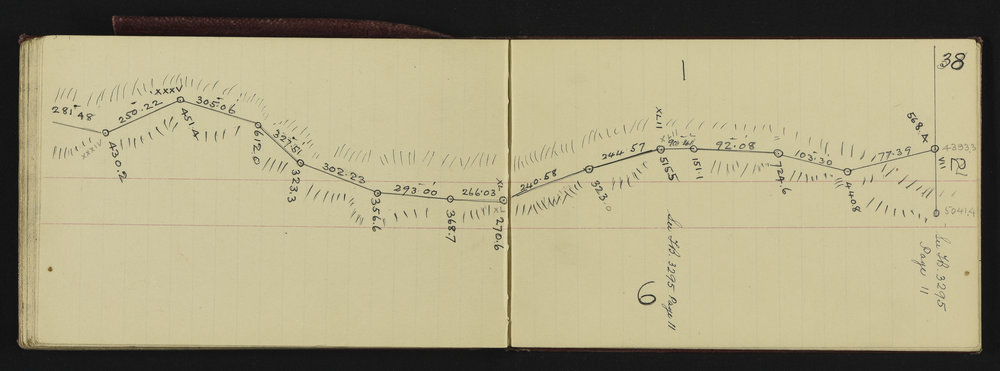 38
1
281°48
250·22
XXXV
305·06
XXXIV
430·2
451·4
612·0
327°51
323·3
302·23
356·6
293·00
368·7
266·03
XL
XL
270·6
240·58
323·0
244·57
XLII
515·5
151·1
92·08
724·6
103·30
440·8
77·39
568·4
4393·3
VII
21
5041·4
See FB. 3295 Page 11
6
See FB. 3295
Page 11